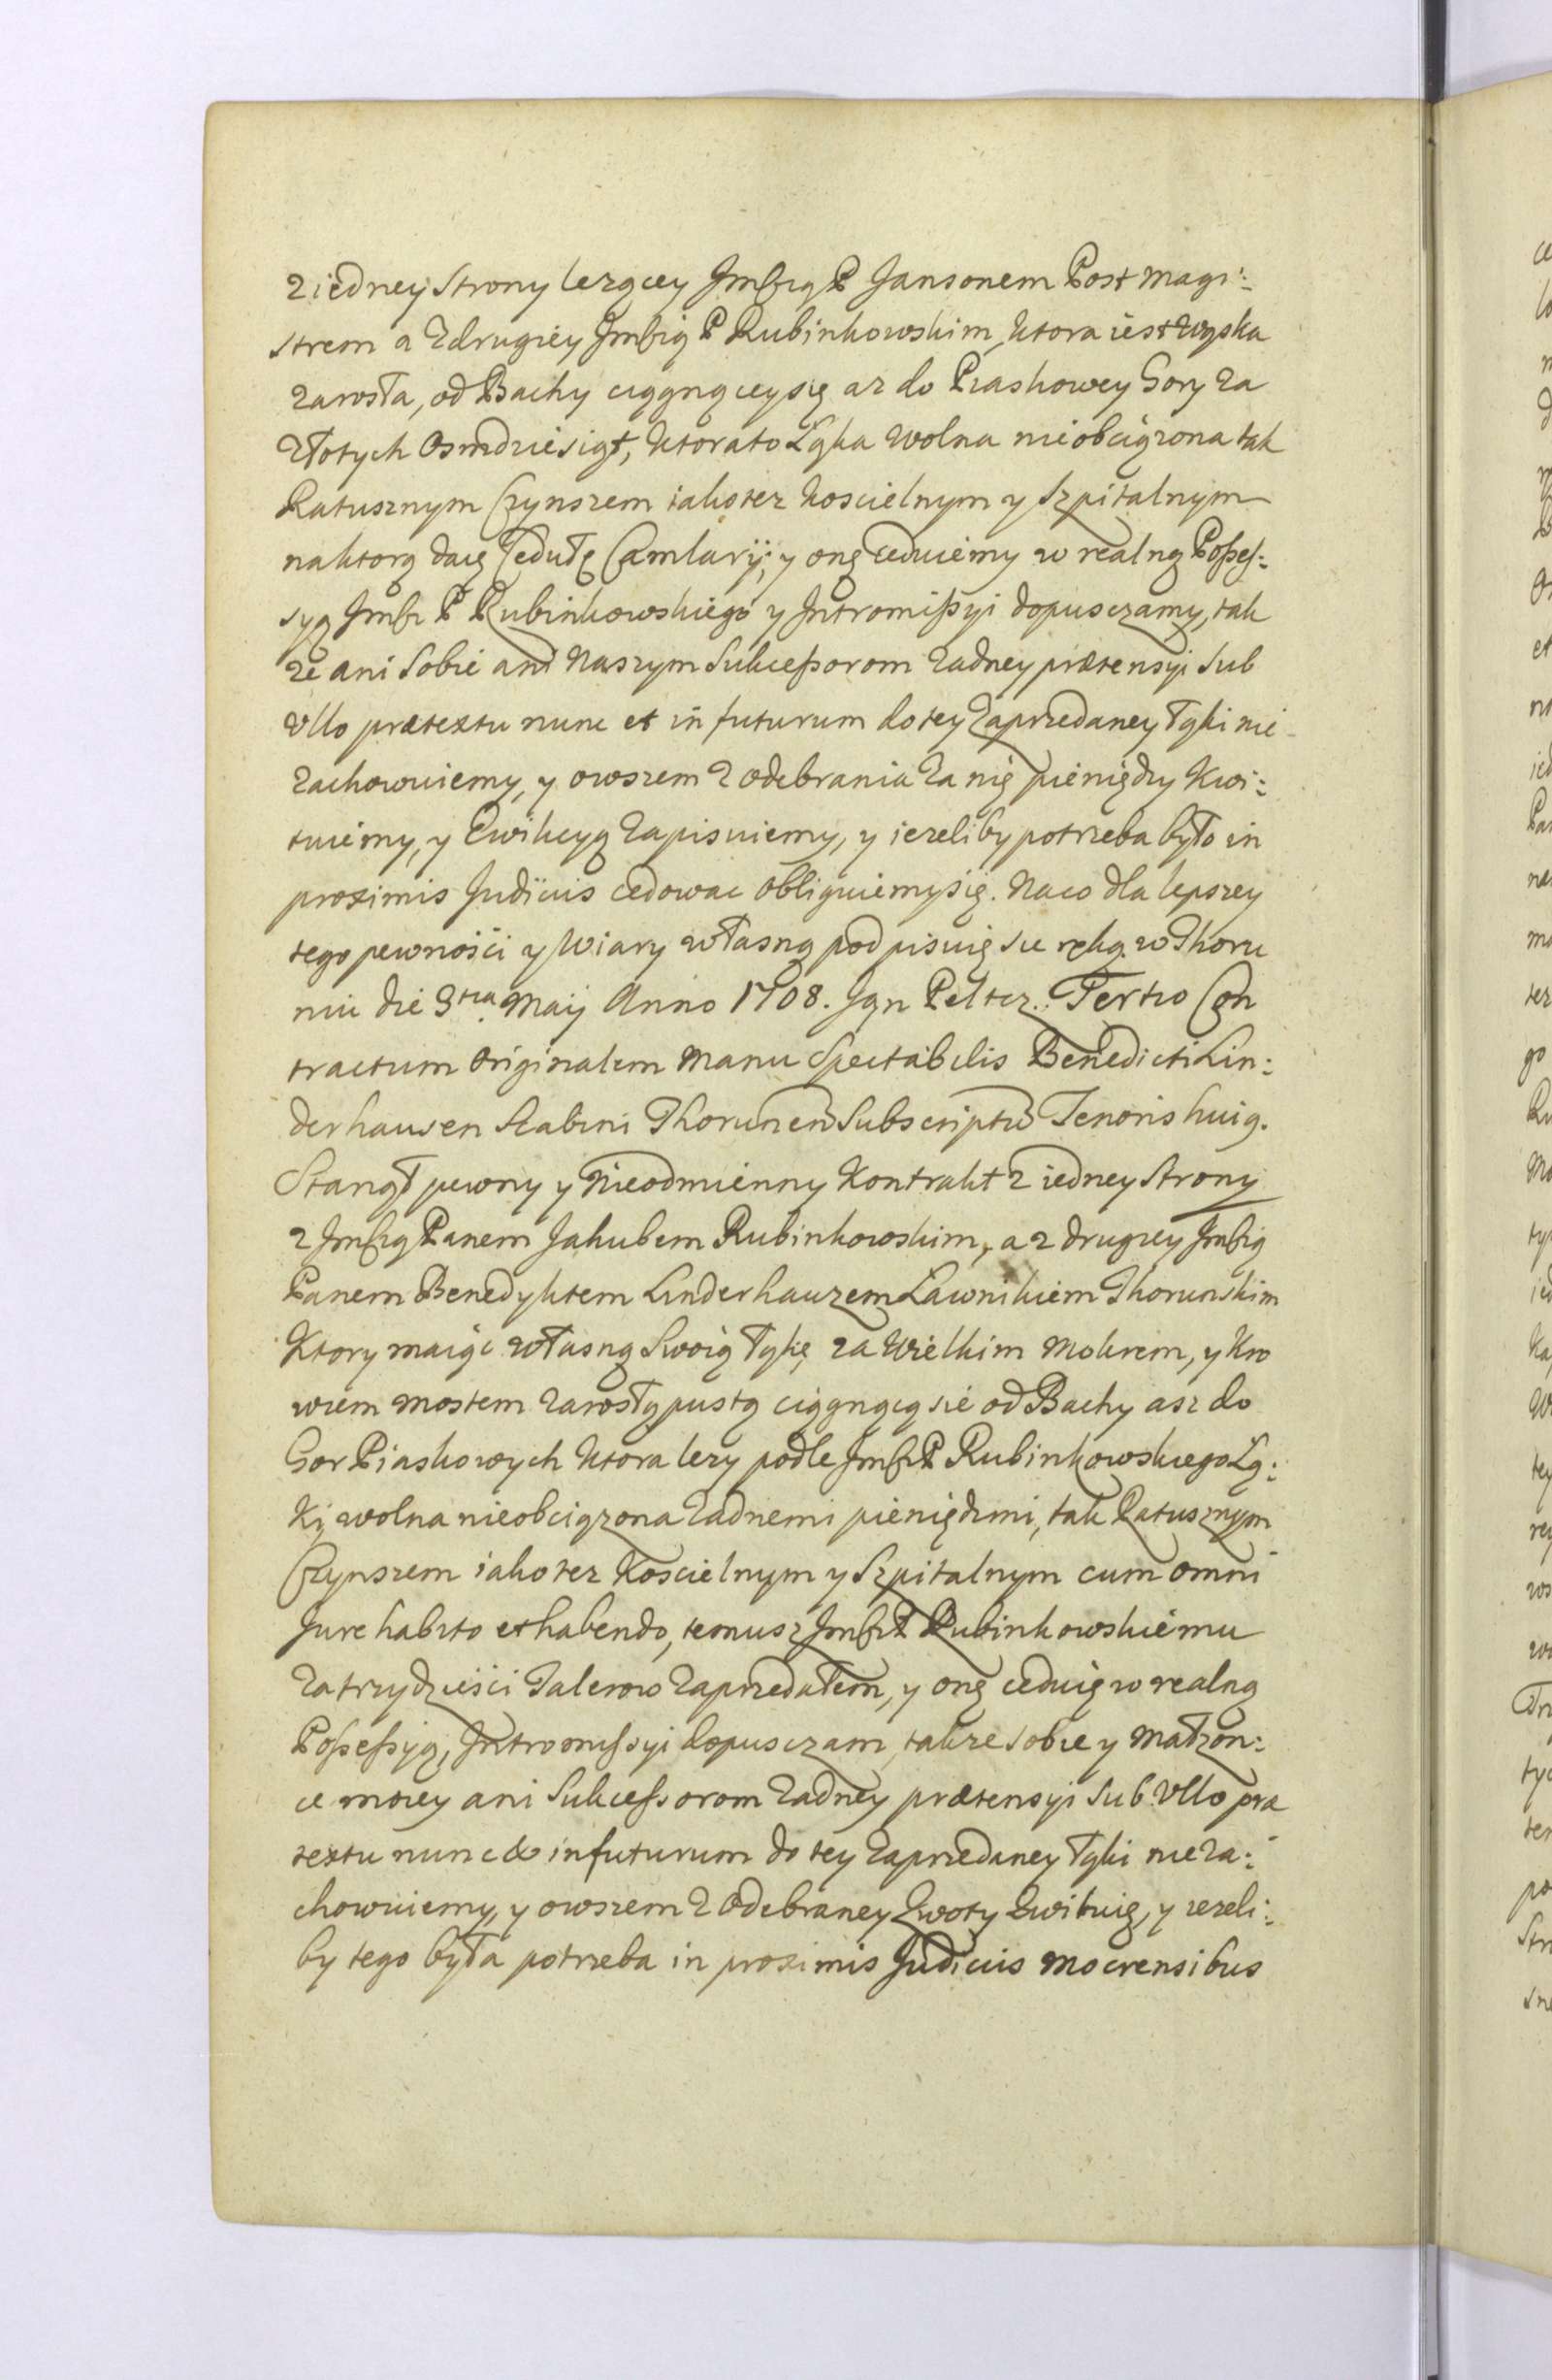 z iedney Strony lezącey Jmścią P Jansonem Post Magi:
strem a z drugiey Jmścią P Rubinkowskim, ktora iest wąska
zarosła, od Bachy ciągnącey się az do Piaskowey Gory za
złotych Osmdziesiąt, ktorato Łąka wolna nieobciązona tak
Ratusznym Czynszem iakotez koscielnym y Szpitalnym
naktorą daię Cedułę Camlarÿ; y onę ceduiemy w realną Poßeſ:
syą Jmści P Rubinkowskiego y Intromißyi dopusczamy, tak
ze ani Sobie ani Naszym Sukceßorom zadney prætensyi Sub
Vllo prætextu nunc et in futurum do tey zaprzedaney łąki nie
zachowuiemy, y owszem z odebrania za nię pieniędzy kwi:
tuiemy, y Ewikcyą zapisuiemy, y iezeliby potrzeba było in
proximis Judiciis cedowac obliguiemysię. Naco dla lepszey
tego pewnosci y Wiary własną podpisuię sie ręką w Thoru
niu die 3tia Maij Anno 1708. Jan Peltcz. Tertio Con
tractum Originalem Manu Spectabilis Benedicti Lin:
derhausen Scabini Thorunen Subscriptū Tenoris huiq.
Stanął pewny y Nieodmienny Kontrakt z iedney strony
z Jmścią Panem Jakubem Rubinkowskim, a z drugiey Jmścią
Panem Benedyktem Linderhauzem Ławnikiem Thorunskim
Ktory maiąc własną Swoią łąkę za Wielkim Mokrem, y Kro
wiem mostem zarosłą pustą ciągnącą sie od Bachy asz do
Gor Piaskowych ktora lezy podle Jmści P Rubinkowskiego Łą:
ki, wolna nieobciązona zadnemi pieniędzmi, tak Ratusznym
Czynszem iakotez Koscielnym y Szpitalnym cum omni
Jure habito et habendo, temusz Jmści P Rubinkowskiemu
za trzydziesci Talerow zaprzedałem, y onę ceduię w realną
Poßeßyą, Intromiſsyi dopusczam, takze sobie y Małzon:
ce moiey ani Sukceſsorom zadney prætensyi Sub Vllo præ
textu nunc & in futurum do tey zaprzedaney łąki nie za:
chowuiemy, y owszem z Odebraney kwoty kwituię, y iezeli:
by tego była potrzeba in proximis Judiciis Mocrensibus